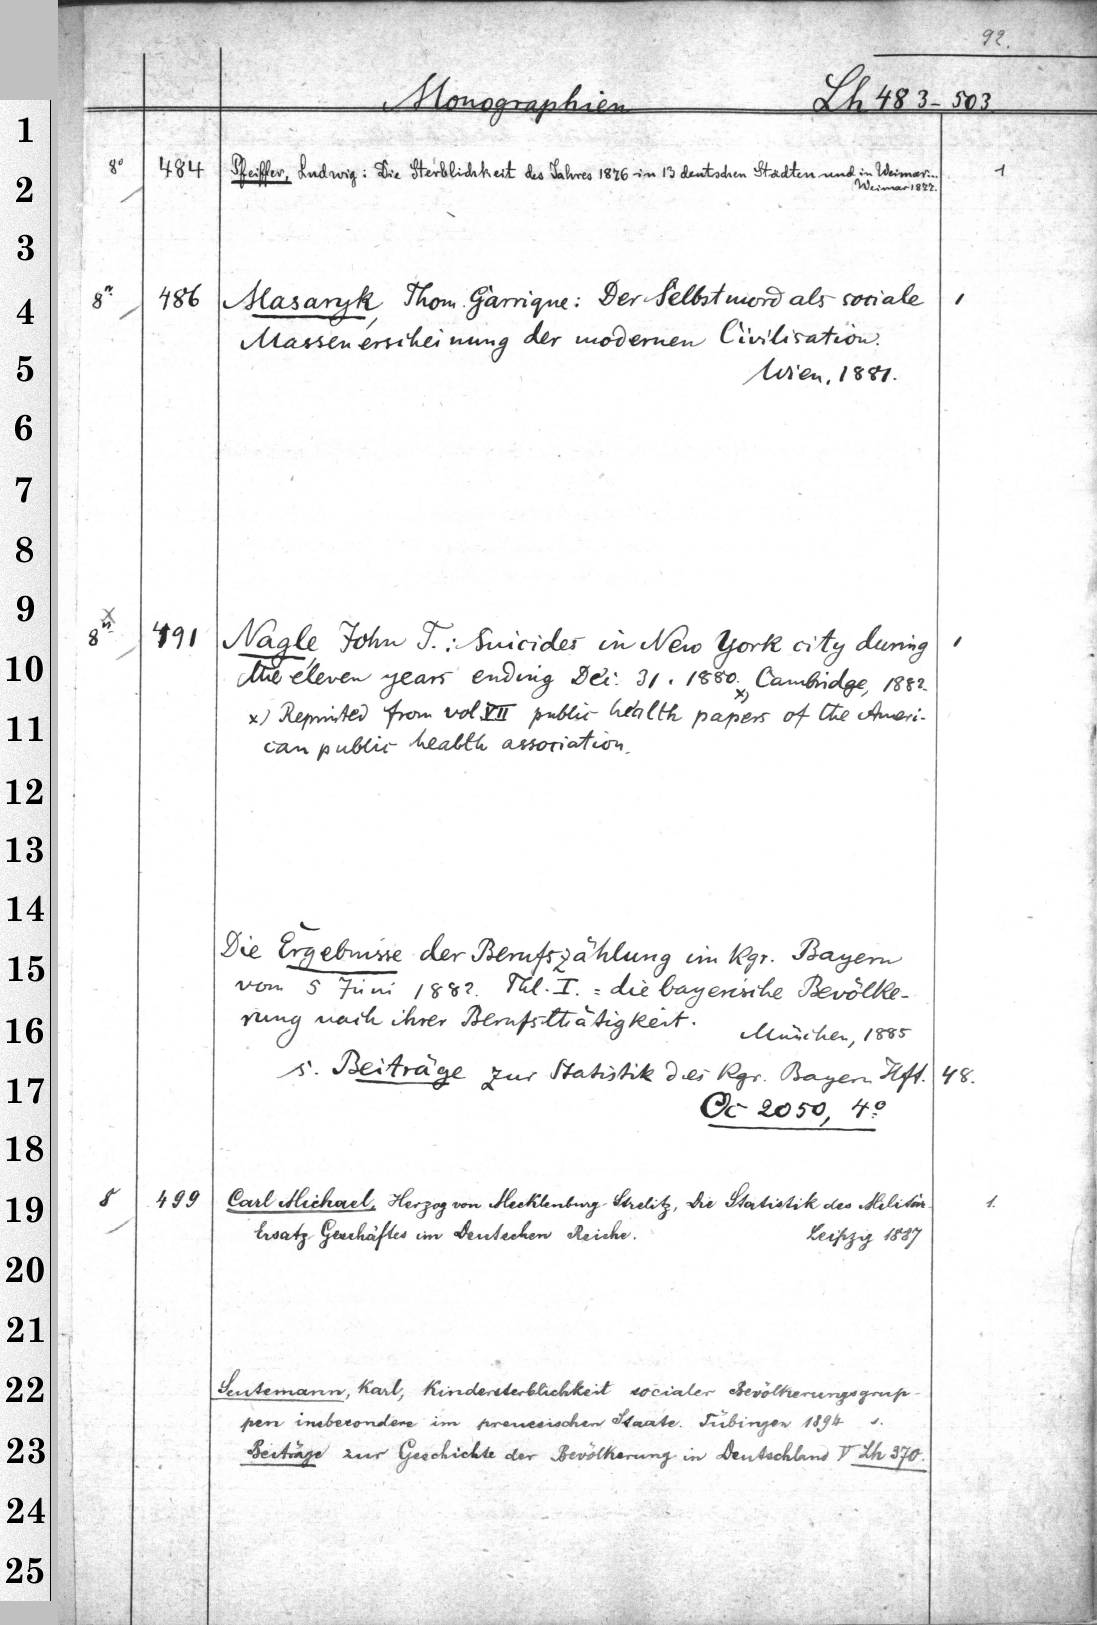 92.
Monographien Lh 483-503
8° 484 Pfeiffer, Ludwig: Die Sterblichkeit des Jahres 1876 in 13 deutschen Städten und in Weimar... 1
Weimar 1877.
8° 486 Masaryk, Thom. Garrigue: Der Selbstmord als sociale 1
Massenerscheinung der modernen Civilisation.
Wien, 1881.
x
8° 491 Nagle, John T.: Suicides in New York city during 1
the eleven years ending Dec. 31. 1880. x) Cambridge, 1882.
x) Reprinted from vol. VII public health papers of the Ameri-
can public health association.
Die Ergebnisse der Berufszählung im Kgr. Bayern
vom 5 Juni 1882. Thl. I. = die bayerische Bevölke-
rung nach ihrer Berufsthätigkeit. München, 1885
s. Beiträge zur Statistik des Kgr. Bayern Hft. 48.
Oc 2050, 4°
8 499 Carl Michael, Herzog von Mecklenburg-Strelitz, Die Statistik des Militär- 1.
Ersatz Geschäftes im Deutschen Reiche. Leipzig 1887
Seutemann, Karl, Kindersterblichkeit socialer Bevölkerungsgrup-
pen insbesondere im preussischen Staate. Tübingen 1894 s.
Beiträge zur Geschichte der Bevölkerung in Deutschland V Lh 370.
1
2
3
4
5
6
7
8
9
10
11
12
13
14
15
16
17
18
19
20
21
22
23
24
25